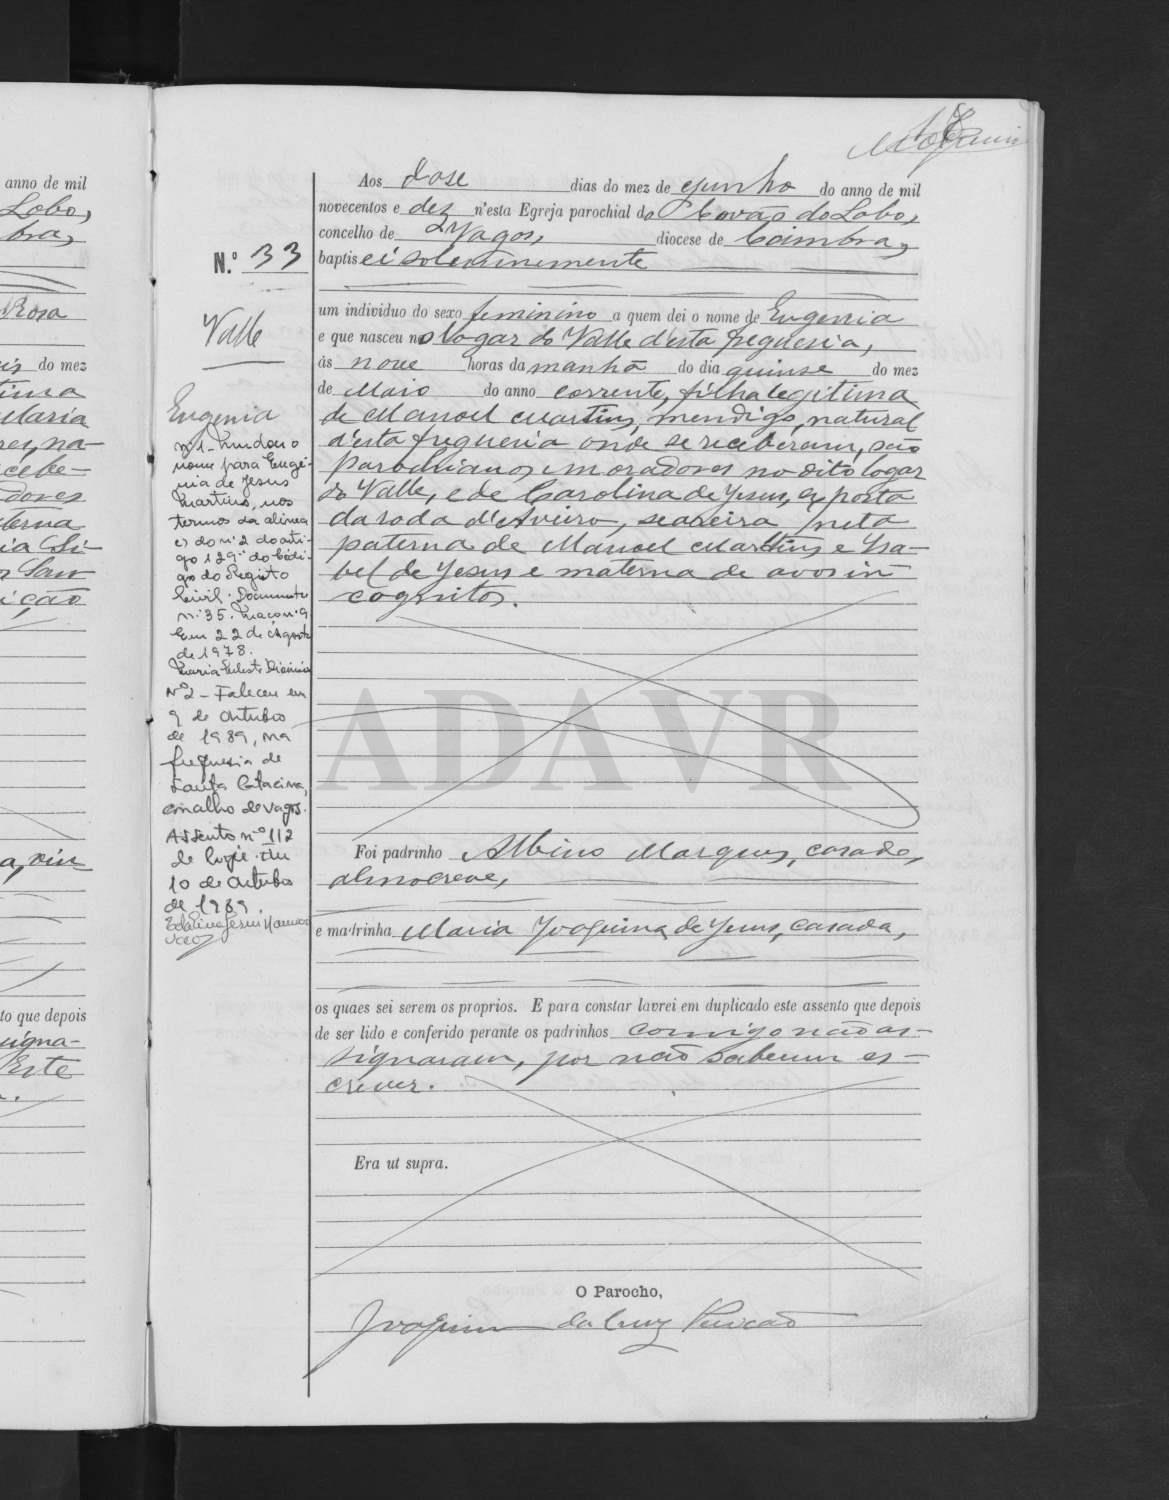 anno de mil
Lobo,
bra,
Rosa
do mez
Maria
cebe-
dores
terna
ição
to que depois
signa-
Este
Aos dose dias do mez de Junho do anno de mil
novecentos e dez n'esta Egreja parochial do Covão do Lobo,
concelho de Vagos, diocese de Coimbra,
baptisei solemnemente
um individuo do sexo feminino a quem dei o nome de Eugenia
e que nasceu no logar do Valle d'esta freguesia,
ás nove horas da manhã do dia quinse do mez
de Maio do anno corrente, filha legitima
de Manoel Martins, mendigo, natural
d'esta freguesia onde se receberam, são
parochianos e moradores no dito logar
do Valle, e de Carolina de Jesus, exposta
da roda d'Aveiro, seareira, neta
paterna de Manoel Martins e Isa-
bel de Jesus e materna de avos in-
cognitos.
ADAVR
Foi padrinho Albino Marques, casado,
almocreve,
e madrinha Maria Joaquina de Jesus, casada,
os quaes sei serem os proprios. E para constar lavrei em duplicado este assento que depois
de ser lido e conferido perante os padrinhos comigo não as-
signaram, por não saberem es-
crever.
Era ut supra.
O Parocho,
Joaquim da Cruz
N.º 33
Valle
Eugenia
nº 1 - Mudou o
nome para Eugé-
nia de Jesus
Martins, nos
termos da alinea
e) do nº 2 do arti-
go 129º do Códi-
go do Registo
Civil. Documento
nº 35. Maço nº 9
Em 22 de Agosto
de 1978.
Nº 2 - Faleceu em
9 de Outubro
de 1989, na
freguesia de
Santa Catarina,
concelho de Vagos.
Assento nº 112
de hoje. Em
10 de Outubro
de 1989.